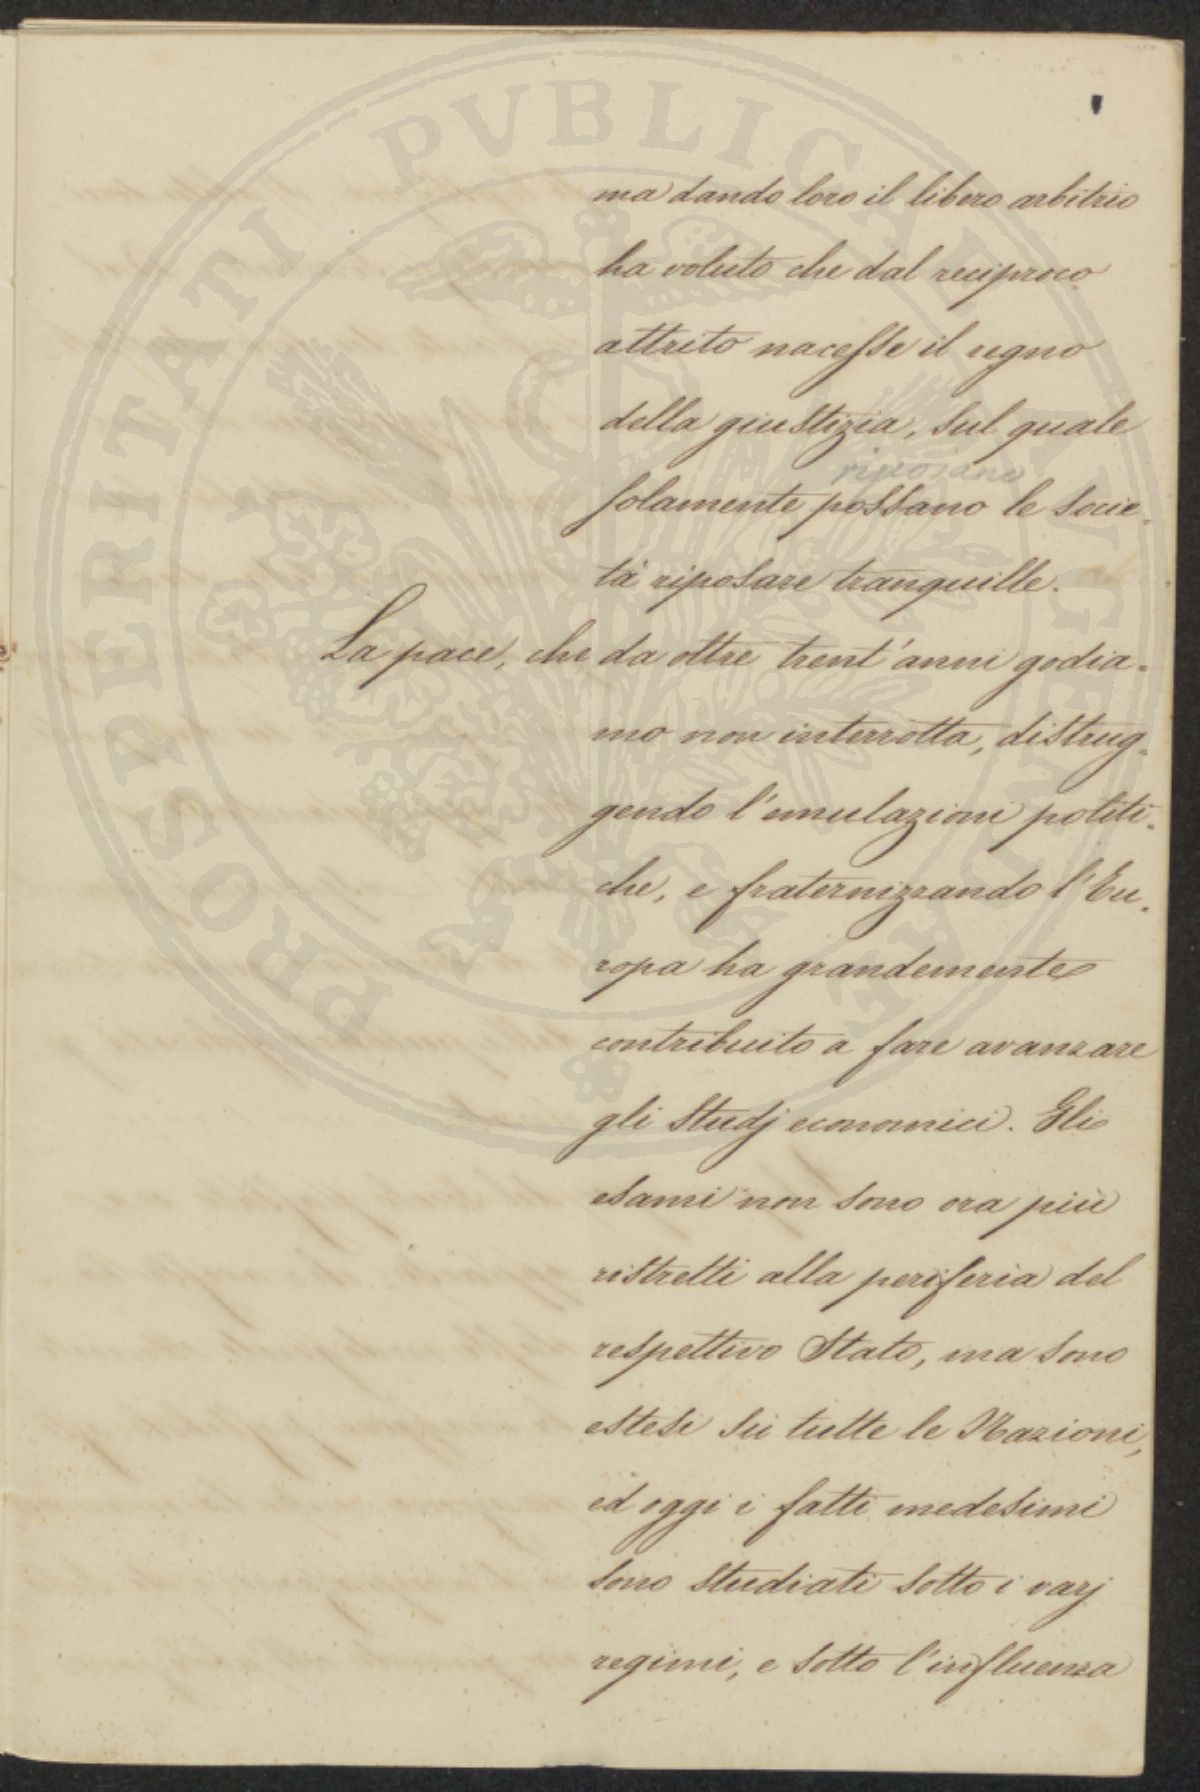 PROSPERITATI PUBLICAE AUGENDAE
ma dando loro il libero arbitrio
ha voluto che dal reciproco
attrito nacesse il regno
della giustizia, sul quale
riposano
solamente possano le Socie-
tà riposare tranquille.
La pace, che da oltre trent'anni godia-
mo non interrotta, distrug-
gendo l'emulazioni politi-
che, e fraternizzando l'Eu-
ropa ha grandemente
contribuito a fare avanzare
gli Studj economici. Gli
esami non sono ora più
ristretti alla periferia del
respettivo Stato, ma sono
estesi su tutte le Nazioni,
ed oggi i fatti medesimi
sono studiati sotto i varj
regimi, e sotto l'influenza